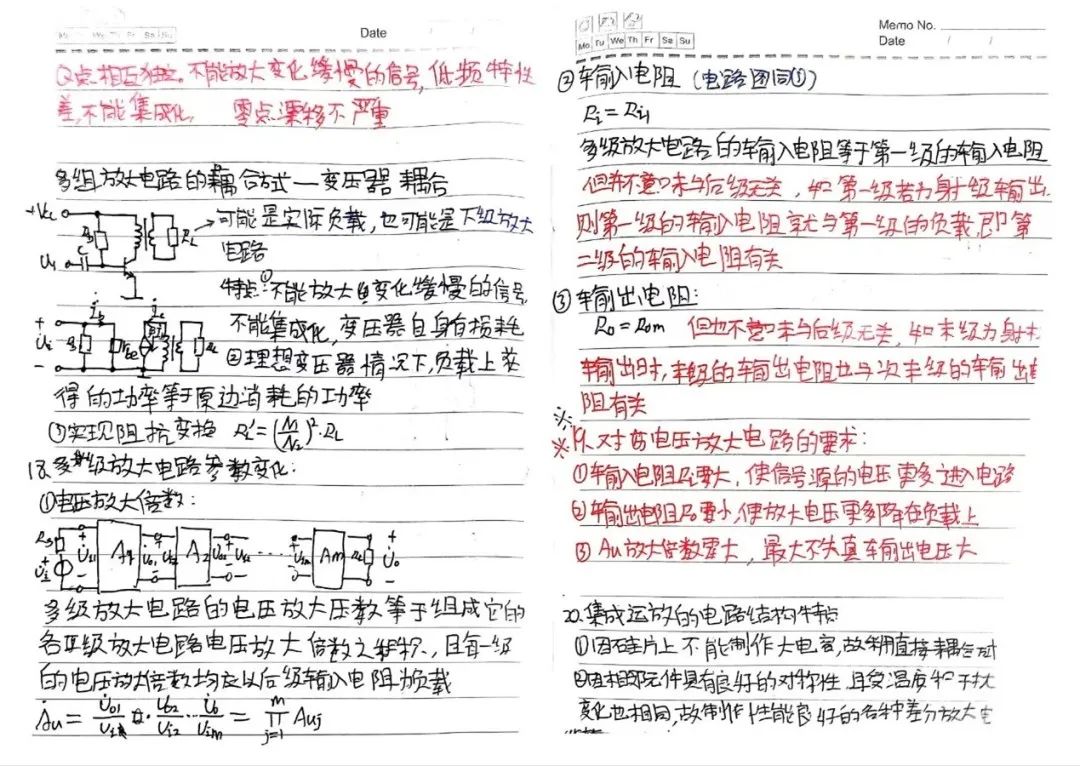 Mo Tu We Th Fr Sa Su
Date / /
Q点相互独立,不能放大变化缓慢的信号,低频特性
差,不能集成化, 零点漂移不严重
多组放大电路的耦合方式—变压器耦合
+Vcc
Rb
RL
可能是实际负载,也可能是下级放大
电路
C
Ui
特点:①不能放大变化缓慢的信号
不能集成化,变压器自身有损耗
ib
ic
+
Ui
-
Rb
rbe
RL
②理想变压器情况下,负载上获
得的功率等于原边消耗的功率
③实现阻抗变换 RL'=(N1/N2)²·RL
18.多级放大电路参数变化:
①电压放大倍数:
Rs
Us
+
Ui1
-
A1
+
Uo1
-
Ui2
A2
+
Uo2
-
Ui3
···
+
Uim
-
Am
RL
+
Uo
-
多级放大电路的电压放大压数等于组成它的
各级放大电路电压放大倍数之积,且每一级
的电压放大倍数均应以后级输入电阻为负载
Au = Uo1/Ui1 · Uo2/Ui2 · Uo/Uim = ∏ m j=1 Auj
Mo Tu We Th Fr Sa Su
Memo No.
Date / /
②输入电阻(电路图同①)
Ri=Ri1
多级放大电路的输入电阻等于第一级的输入电阻
但并不意味与后级无关,如第一级若为射级输出
则第一级的输入电阻就与第一级的负载,即第
二级的输入电阻有关
③输出电阻:
Ro=Rom 但也不意味与后级无关,如末级为射
输出时,末级的输出电阻也与次末级的输出电
阻有关
※19.对电压放大电路的要求:
①输入电阻Ri要大,使信号源的电压更多进入电路
②输出电阻Ro要小,使放大电压更多降在负载上
③Au放大倍数要大,最大不失真输出电压大
20.集成运放的电路结构特点
①因硅片上不能制作大电容,故采用直接耦合方式
②因相邻元件具有良好的对称性 且受温度和干扰
变化也相同,故制作性能良好的各种差分放大电